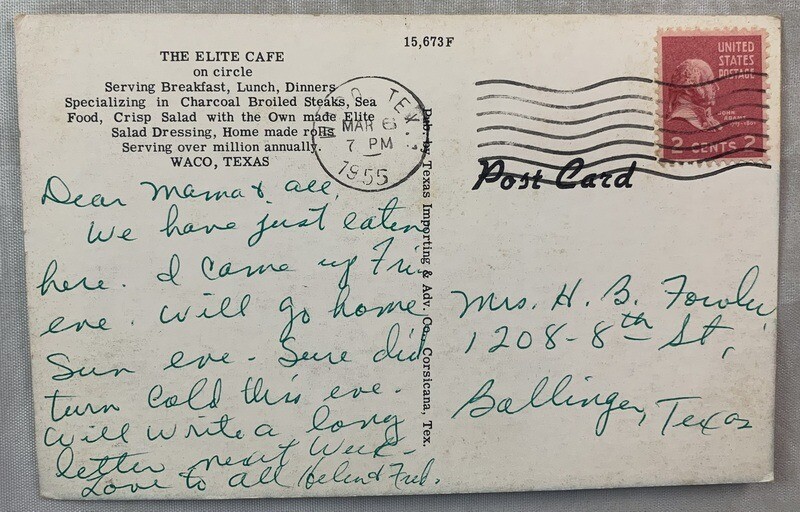 15,673F
THE ELITE CAFE
on circle
Serving Breakfast, Lunch, Dinners
Specializing in Charcoal Broiled Steaks, Sea
Food, Crisp Salad with the Own made Elite
Salad Dressing, Home made rolls
Serving over million annually.
WACO, TEXAS
TEX.
MAR 6
7 PM
1955
UNITED
STATES
POSTAGE
JOHN
ADAMS
2 CENTS 2
Post Card
Pub. by Texas Importing & Adv. Co. Corsicana, Tex.
Dear Mama & all,
We have just eaten
here. I came up Fri.
eve. will go home
Sun eve - Sure did
turn cold this eve.
Will write a long
letter next week -
Love to all Helen & Fred.
Mrs. H. B. Fowler
1208-8th St,
Ballinger, Texas